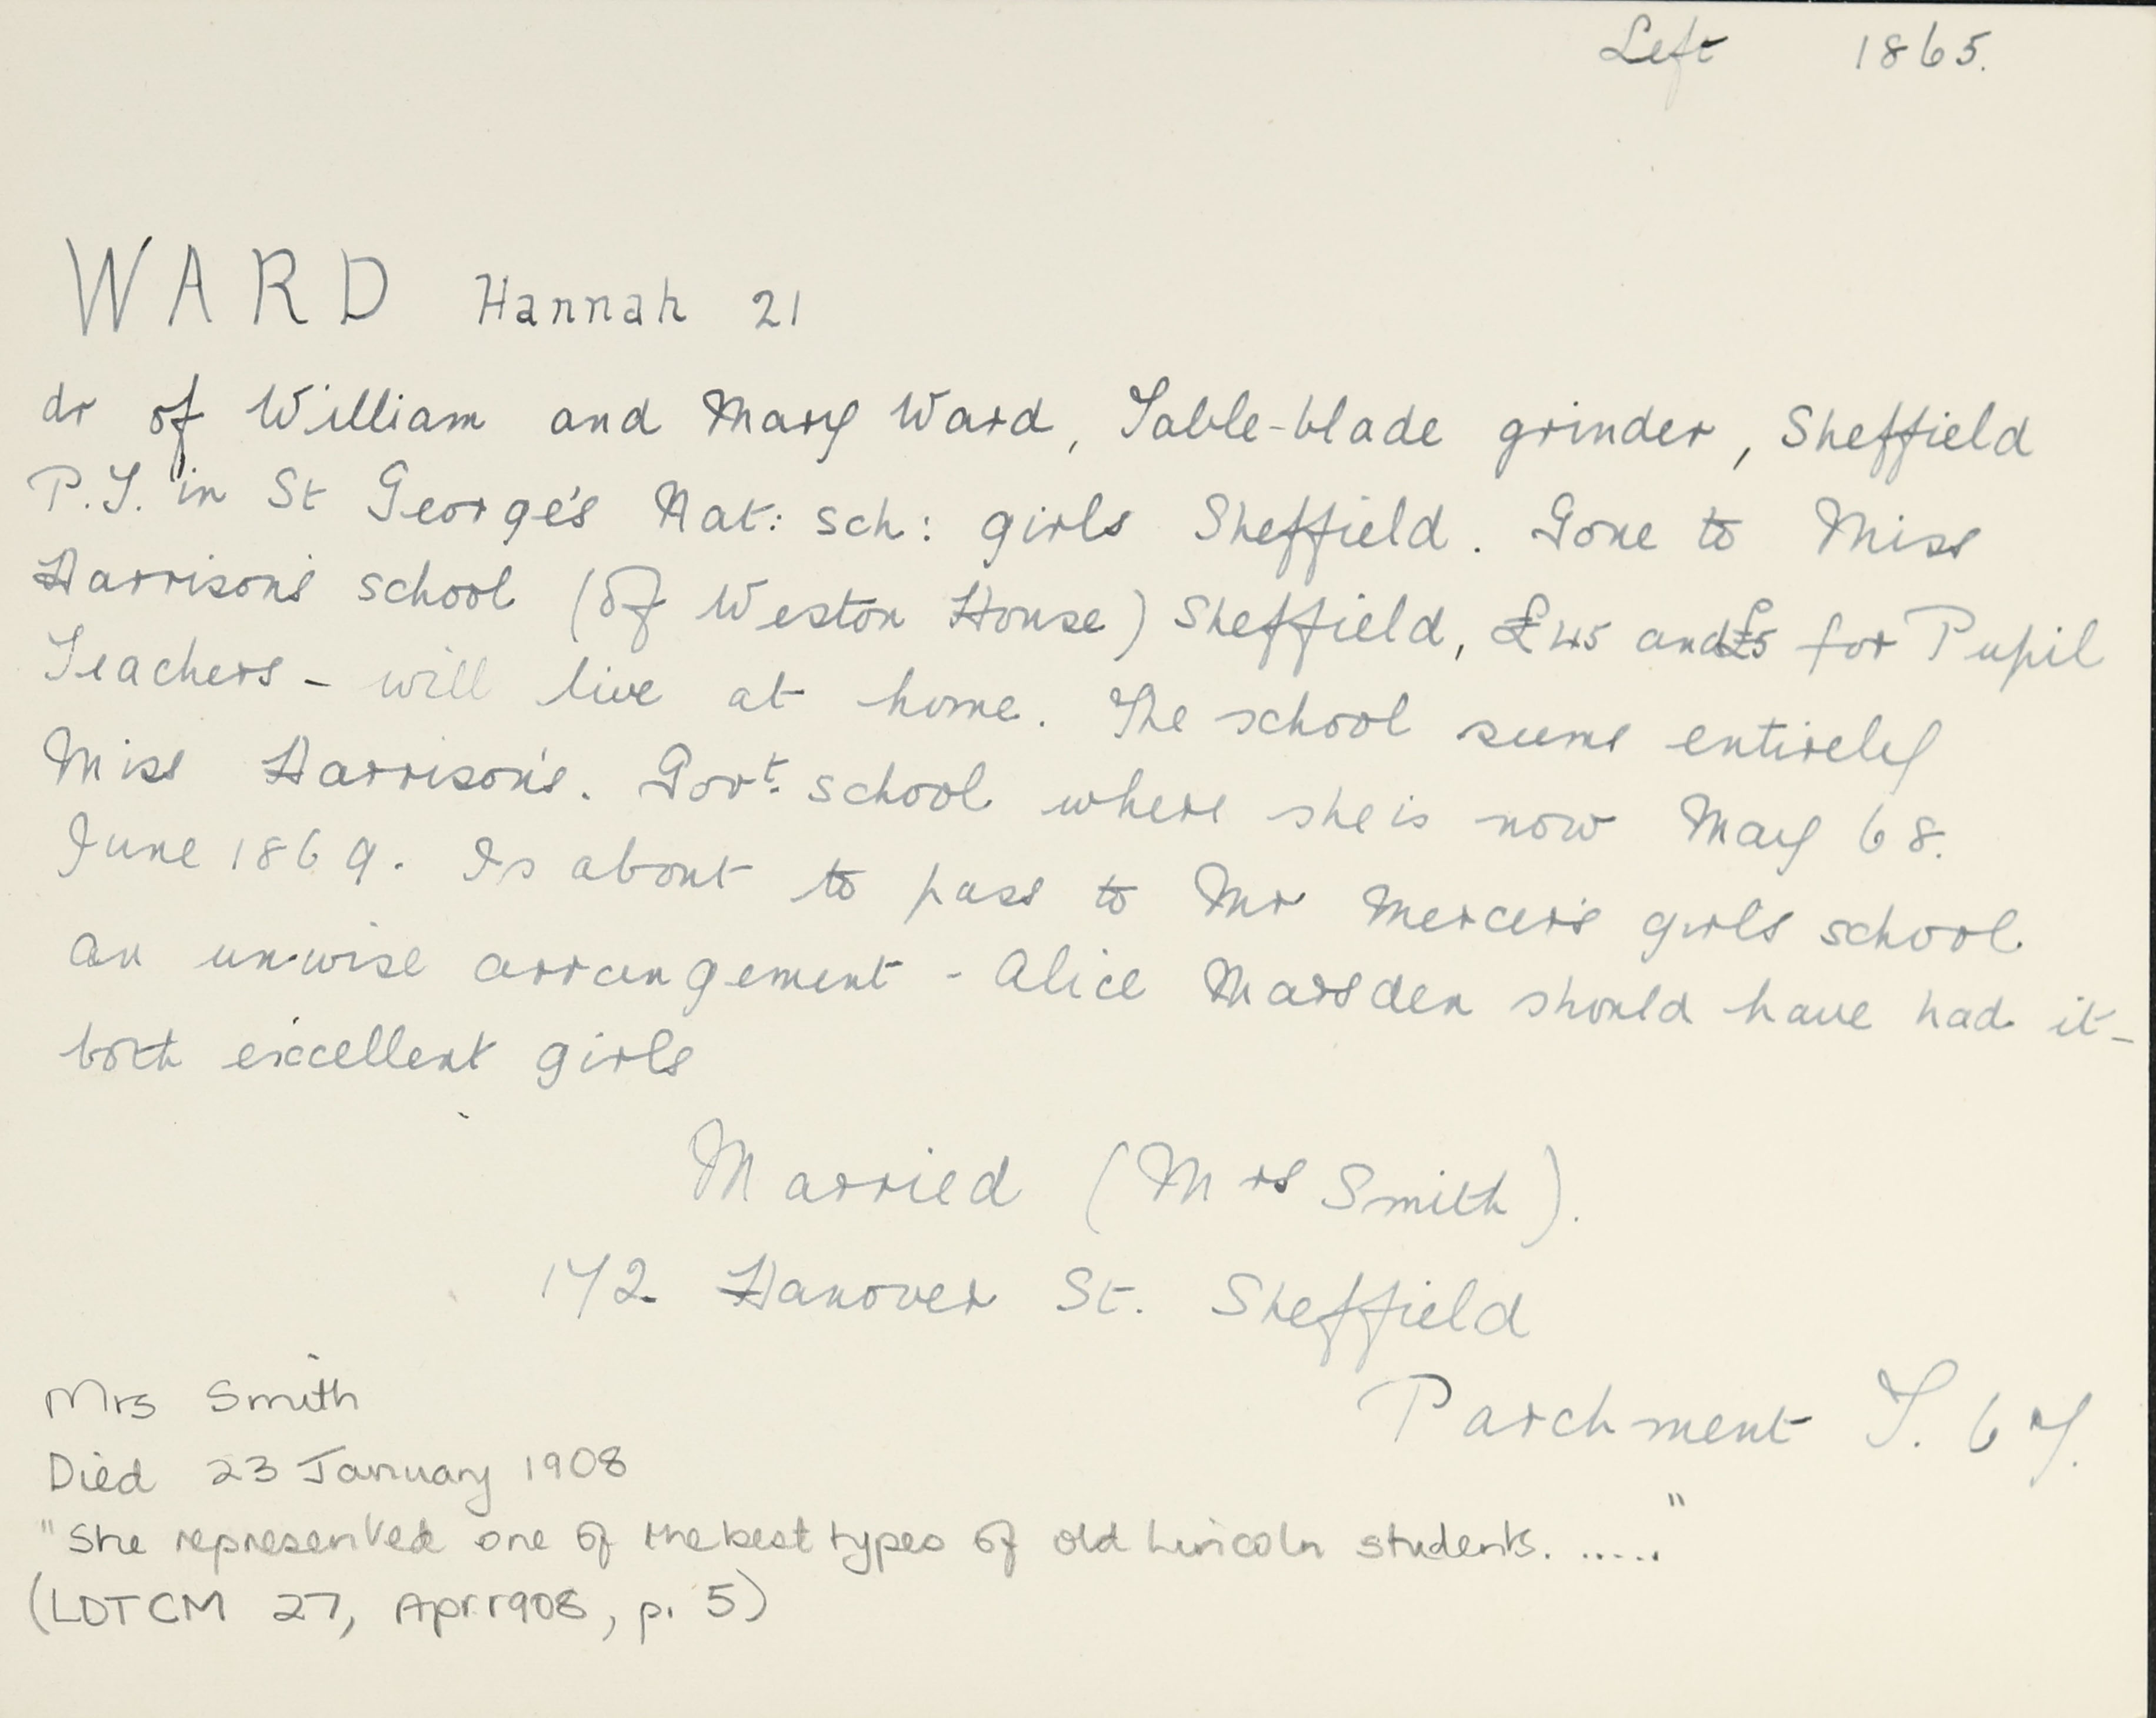 Left 1865.
WARD Hannah 21
dr of William and Mary Ward, Table-blade grinder, Sheffield
P.T. in St George's Nat: sch: girls Sheffield. Gone to Miss
Harrison's school (of Weston House) Sheffield, £45 and £5 for Pupil
Teachers - will live at home. The school seems entirely
Miss Harrison's. Govt. school where she is now May 68.
June 1869. Is about to pass to Mr Mercer's girls school
an unwise arrangement - Alice Marsden should have had it -
both excellent girls
Married (Mrs Smith).
172 Hanover St. Sheffield
Parchment T. 67.
Mrs Smith
Died 23 January 1908
"She represented one of the best types of old Lincoln students. ....."
(LDTCM 27, Apr. 1908, p. 5)